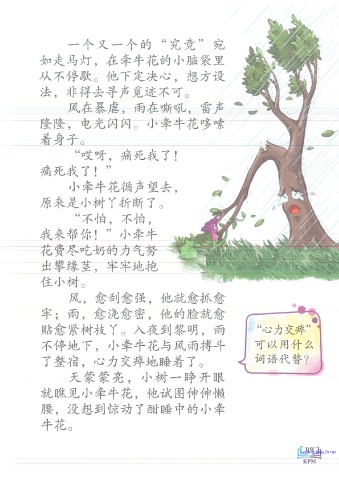 一个又一个的“究竟”宛
如走马灯，在牵牛花的小脑袋里
从不停歇。他下定决心，想方设
法，非得去寻声觅迹不可。
风在暴虐，雨在嘶吼，雷声
隆隆，电光闪闪。小牵牛花哆嗦
着身子。
“哎呀，痛死我了！
痛死我了！”
小牵牛花循声望去，
原来是小树丫折断了。
“不怕，不怕，
我来帮你！”小牵牛
花费尽吃奶的力气努
出攀缘茎，牢牢地抱
住小树。
风，愈刮愈强，他就愈抓愈
牢；雨，愈浇愈密，他的脸就愈
贴愈紧树枝丫。入夜到黎明，雨
不停地下，小牵牛花与风雨搏斗
了整宿，心力交瘁地睡着了。
天蒙蒙亮，小树一睁开眼
就瞧见小牵牛花，他试图伸伸懒
腰，没想到惊动了酣睡中的小牵
牛花。
“心力交瘁”
可以用什么
词语代替？
KPM